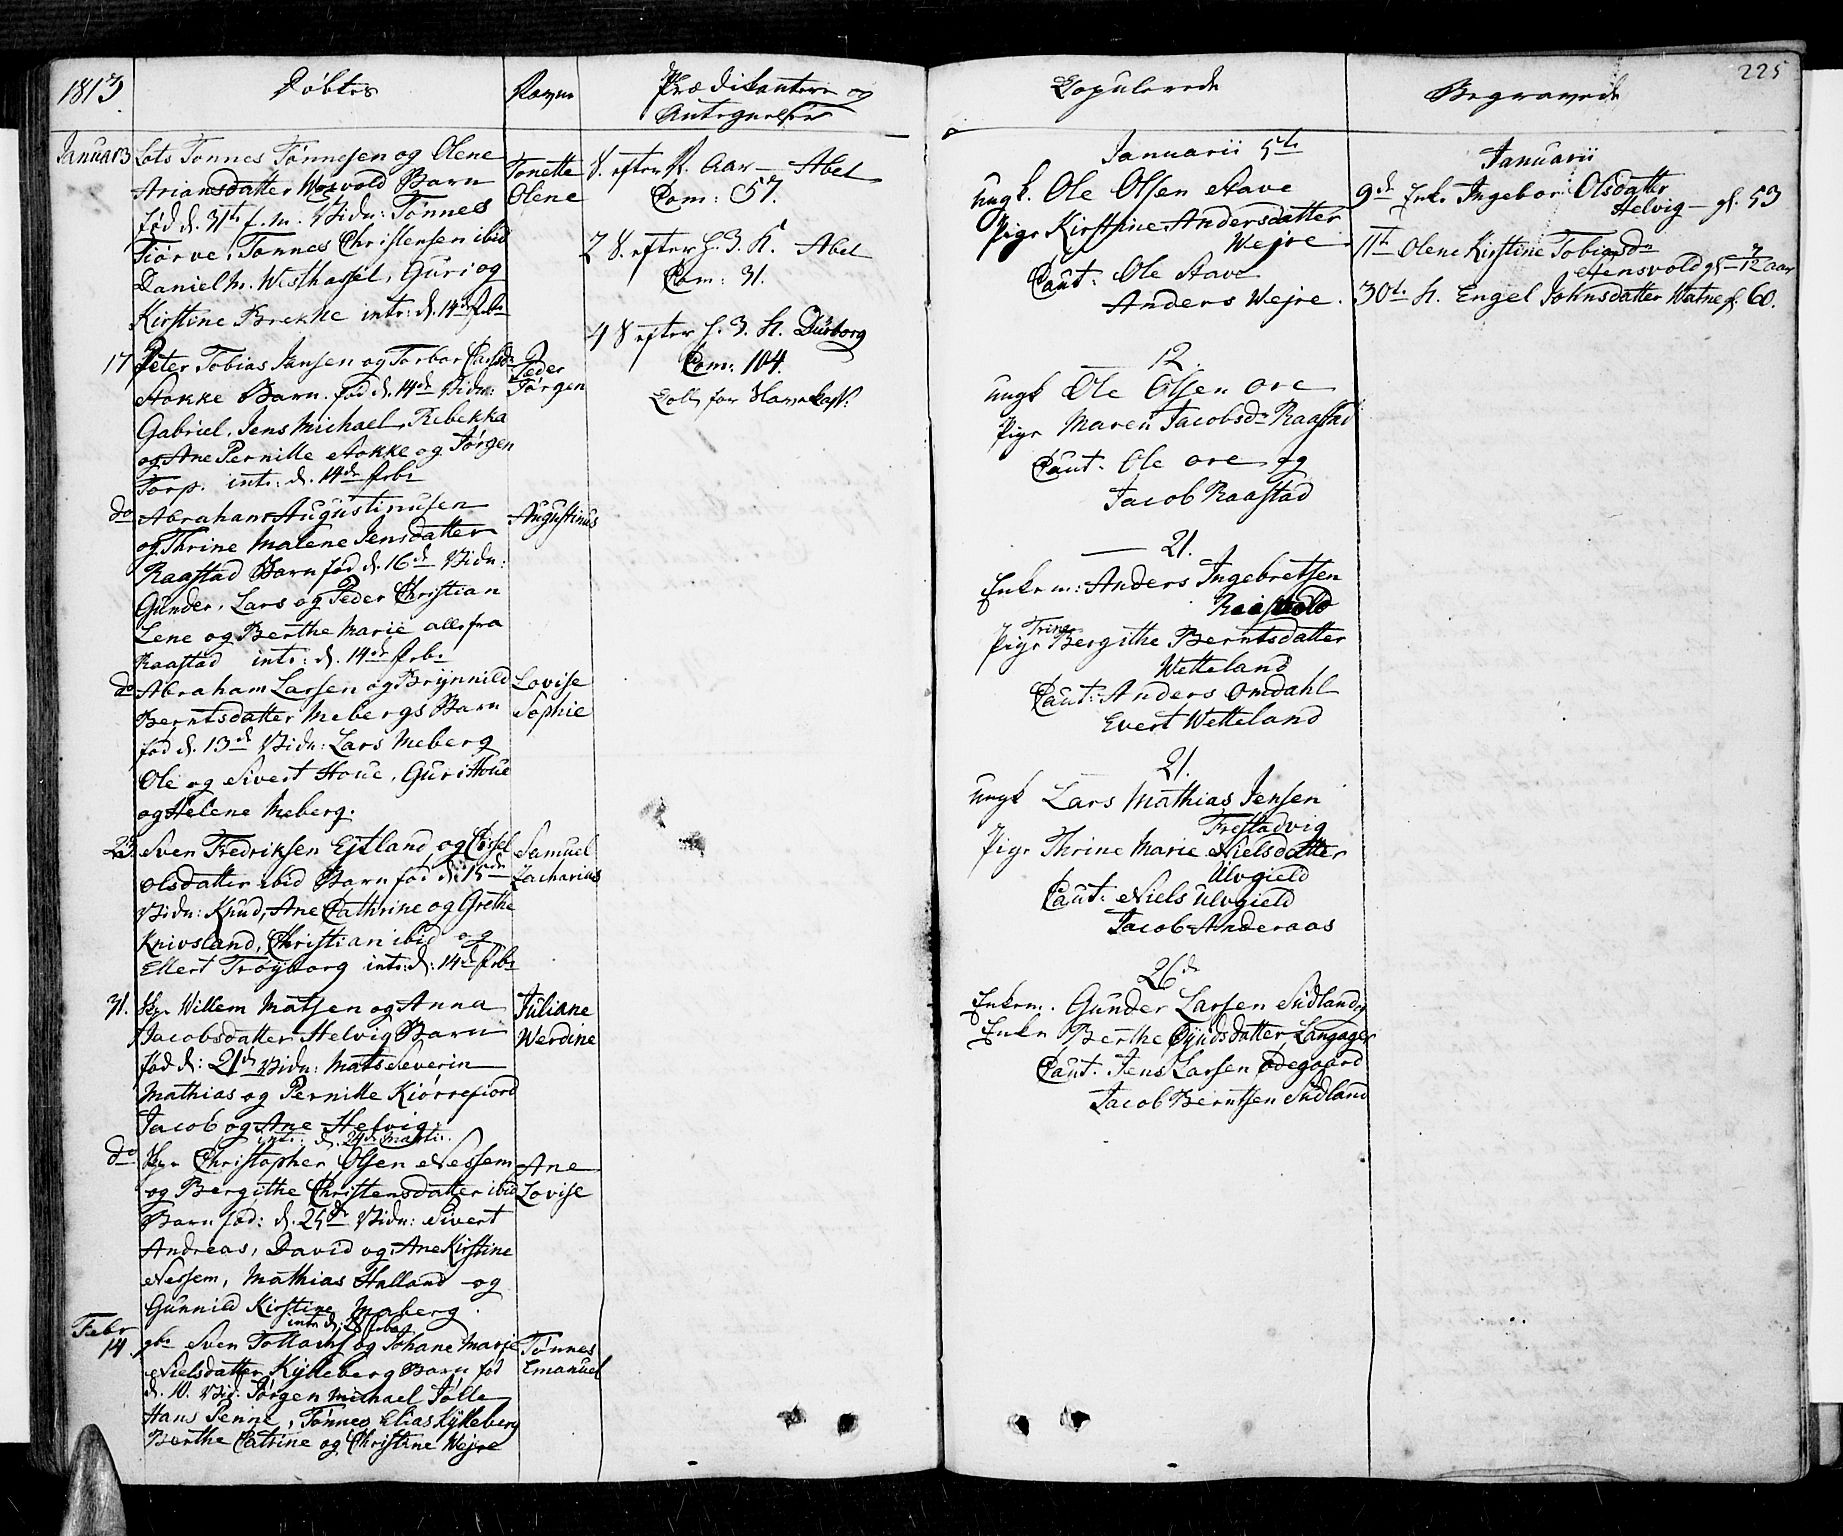 1813
Døbte
Navne
Prædikantere og
Antegnelser
Januar 3 Lots Tønnes Tønnesen og Olene
Ariansdatter Barn
fød d. 31te f. m. Vidn: Tønnes
Tiørve, Tønnes Christensen ibid
Daniel Westhassel, Guri og
Kirstine Brekke intr: d. 14de febr
Tonette
Olene
17 Peter Tobias Jansen og Torbor Carlsdr
Stokke Barn fød d. 14de Vidn:
Gabriel, Jens Michael, Rebekka
og Ane Pernille Stokke og Jørgen
Torp. intr: d. 14de febr
Peder
Jørgen
do Abraham Augustinusen
og Thrine Malene Jensdatter
Raastad Barn fød d. 16de Vidn:
Gunder, Lars og Peder Christian
Lene og Berthe Marie alle fra
Raastad intr: d. 14de febr
Augustinus
do Abraham Larsen og Brynnild
Berntsdatter Mebergs Barn
fød d. 13de Vidn: Lars Meberg
Ole og Sivert Houe, Guri Houe
og Helene Meberg.
Lovise
Sophie
23. Sven Fredriksen Eitland og Cirsel
Olsdatter ibid Barn fød d: 15de
Vidn: Knud, Ane Cathrine og Grethe
Knivsland, Christian ibid og
Ellert Trøyborg intr: d: 14de febr
Samuel
Zacharias
31. Willem Matsen og Anna
Jacobsdatter Helvig Barn
fød d: 21de Vidn: Mats Severin
Mathias og Pernille Kiørrefiord
Jacob og Ane Helvig
intr: d. 24de Martii.
Juliane
Werdine
do Christopher Olsen Nessem
og Bergithe Christensdatter ibid
Barn fød: d. 25de Vidn: Sivert
Andreas, David og Ane Kirstine
Nessem, Mathias Halland og
Gunnild Kirstine Maberg.
intr d: 28 febr
Ane
Lovise
Febr
14. Sven Tollachs og Johane Marie
Nielsdatter Kylleberg Barn fød
d. 10. Vid. Jørgen Michael Tølle
Hans Penne, Tønnes Elias Kylleberg
Berthe Catrine og Christine Wejre
Tønnes
Emanuel
S. efter N. Aar — Abel
Com: 57.
2 S. efter h. 3. K. Abel
Com: 31.
4 S efter h. 3. K. Duborg
Com: 104.
Coll. for
225
Copulerede
Januarii 5te
Ungk. Ole Olsen Stave
Pige Kirstine Andersdatter
Wejre
Caut: Ole Stave
Anders Wejre.
12
Ungk Ole Olsen Ore
Pige Maren Jacobsdr Raastad
Caut: Ole Ore og
Jacob Raastad
21.
Enkem: Anders Ingebretsen
Trine
Pige Bergithe Berntsdatter
Wetteland
Caut: Anders Omdahl
Evert Wetteland
21.
Ungk Lars Mathias Jensen
Frestadvig
Pige Thrine Marie Nielsdatter
Ulvgield
Caut: Niels Ulvgield
Jacob Anderaas
26de
Enkem. Gunder Larsen Sudland
Enke Berthe Øyudsdatter Langager
Caut. Jens Larsen Ødegaard
Jacob Berntsen Sudland
Begravede
Januarii
9de Enke Ingebor Olsdatter
Helvig — gl. 53
11te Olene Kirstine Tobiasdr
Stensvold gl 7/12 aar
30te K. Engel Johnsdatter Watne gl. 60.